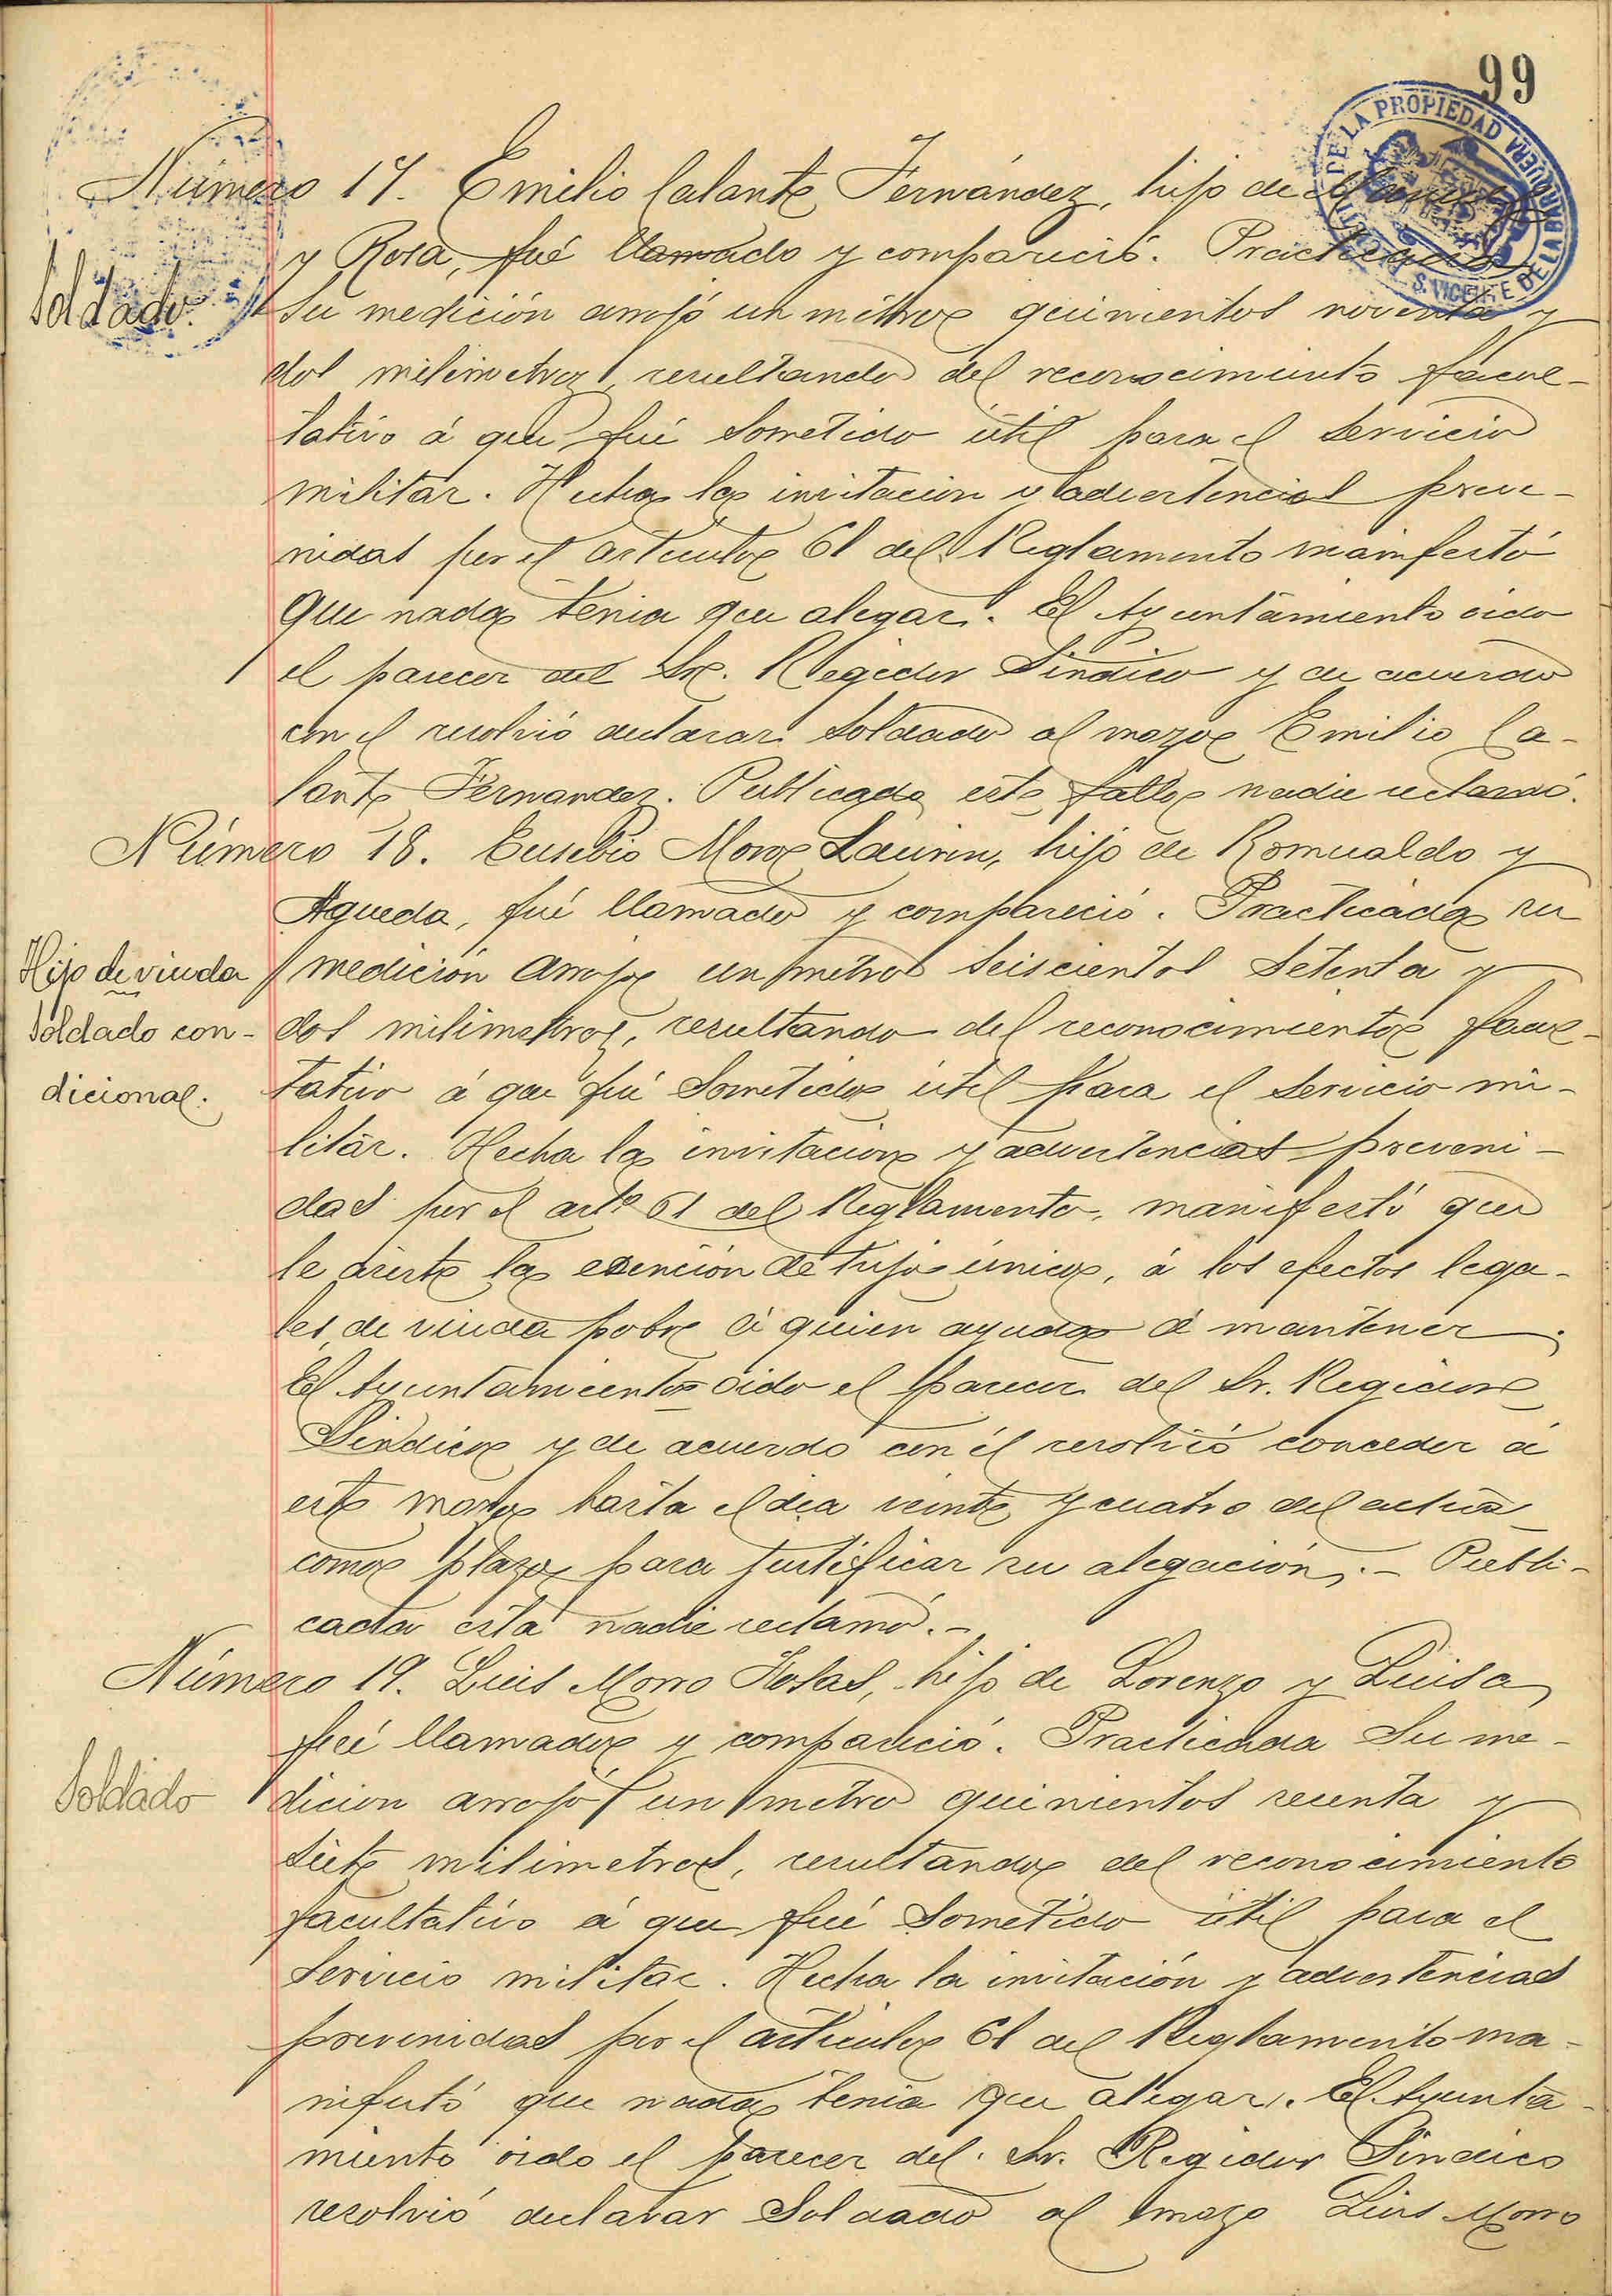 99
DE LA PROPIEDAD
S. VICENTE DE LA BARQUERA
Número 17. Emilio Calante Fernández, hijo de
y Rosa, fué llamado y compareció. Practicada
Soldado.
su medición arrojó un metro quinientos noventa y
dos milimetros, resultando del reconocimiento facul-
tativo á que fué sometido útil para el servicio
militar. Hecha la invitación y advertencias preve-
nidas por el artículo 61 del Reglamento manifestó
que nada tenia que alegar. El Ayuntamiento oido
el parecer del Sr. Regidor Sindico y de acuerdo
con el resolvió declarar soldado al mozo Emilio Ca-
lante Fernandez. Publicado este fallo nadie reclamó.
Número 18. Eusebio Moro Laurin, hijo de Romualdo y
Agueda, fué llamado y compareció. Practicada su
Hijo de viuda
medición arrojo un metro seiscientos setenta y
Soldado con-
dos milimetros, resultando del reconocimiento facul-
dicional.
tativo á que fué sometido útil para el servicio mi-
litar. Hecha la invitacion y advertencias preveni-
das por el artº 61 del Reglamento, manifestó que
le asiste la exención de hijo único, á los efectos lega-
les, de viuda pobre á quien ayuda á mantener.
El Ayuntamiento oido el parecer del Sr. Regidor
Sindico y de acuerdo con él resolvió conceder á
este mozo hasta el dia veinte y cuatro del actual
como plazo para justificar su alegación.- Publi-
cada esta nadie reclamó.-
Número 19. Luis Morro Hosas, hijo de Lorenzo y Luisa,
fué llamado y compareció. Practicada su me-
Soldado
dicion arrojó un metro quinientos secenta y
siete milimetros, resultando del reconocimiento
facultativo á que fué sometido útil para el
servicio militar. Hecha la invitación y advertencias
prevenidas por el artículo 61 del Reglamento ma-
nifestó que nada tenia que alegar. El Ayunta-
miento oido el parecer del Sr. Regidor Sindico
resolvió declarar Soldado al mozo Luis Morro